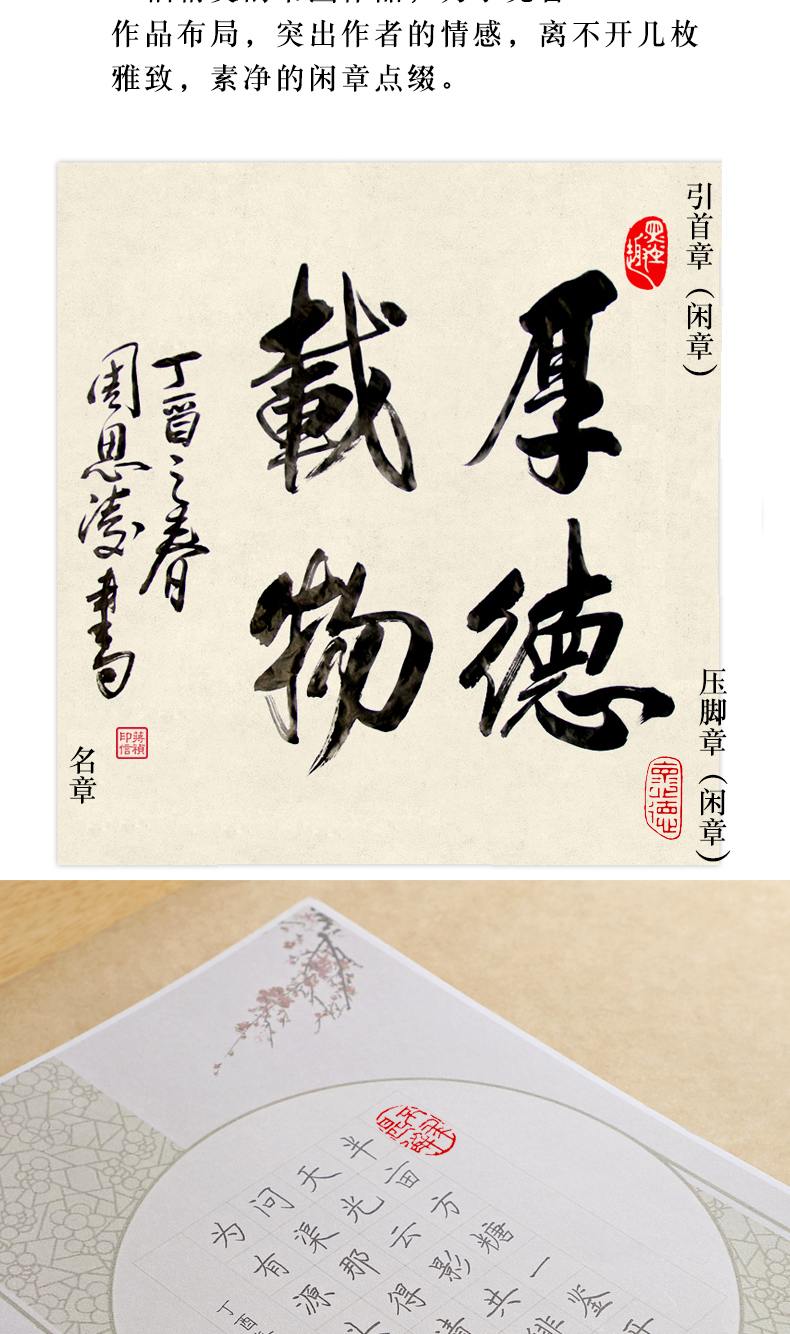 作品布局，突出作者的情感，离不开几枚
雅致，素净的闲章点缀。
引首章（闲章）
厚德
載物
丁酉之春
周思凌書
压脚章（闲章）
名章
半亩方糖一鉴
天光云影共徘
问渠那得清
为有源
丁酉